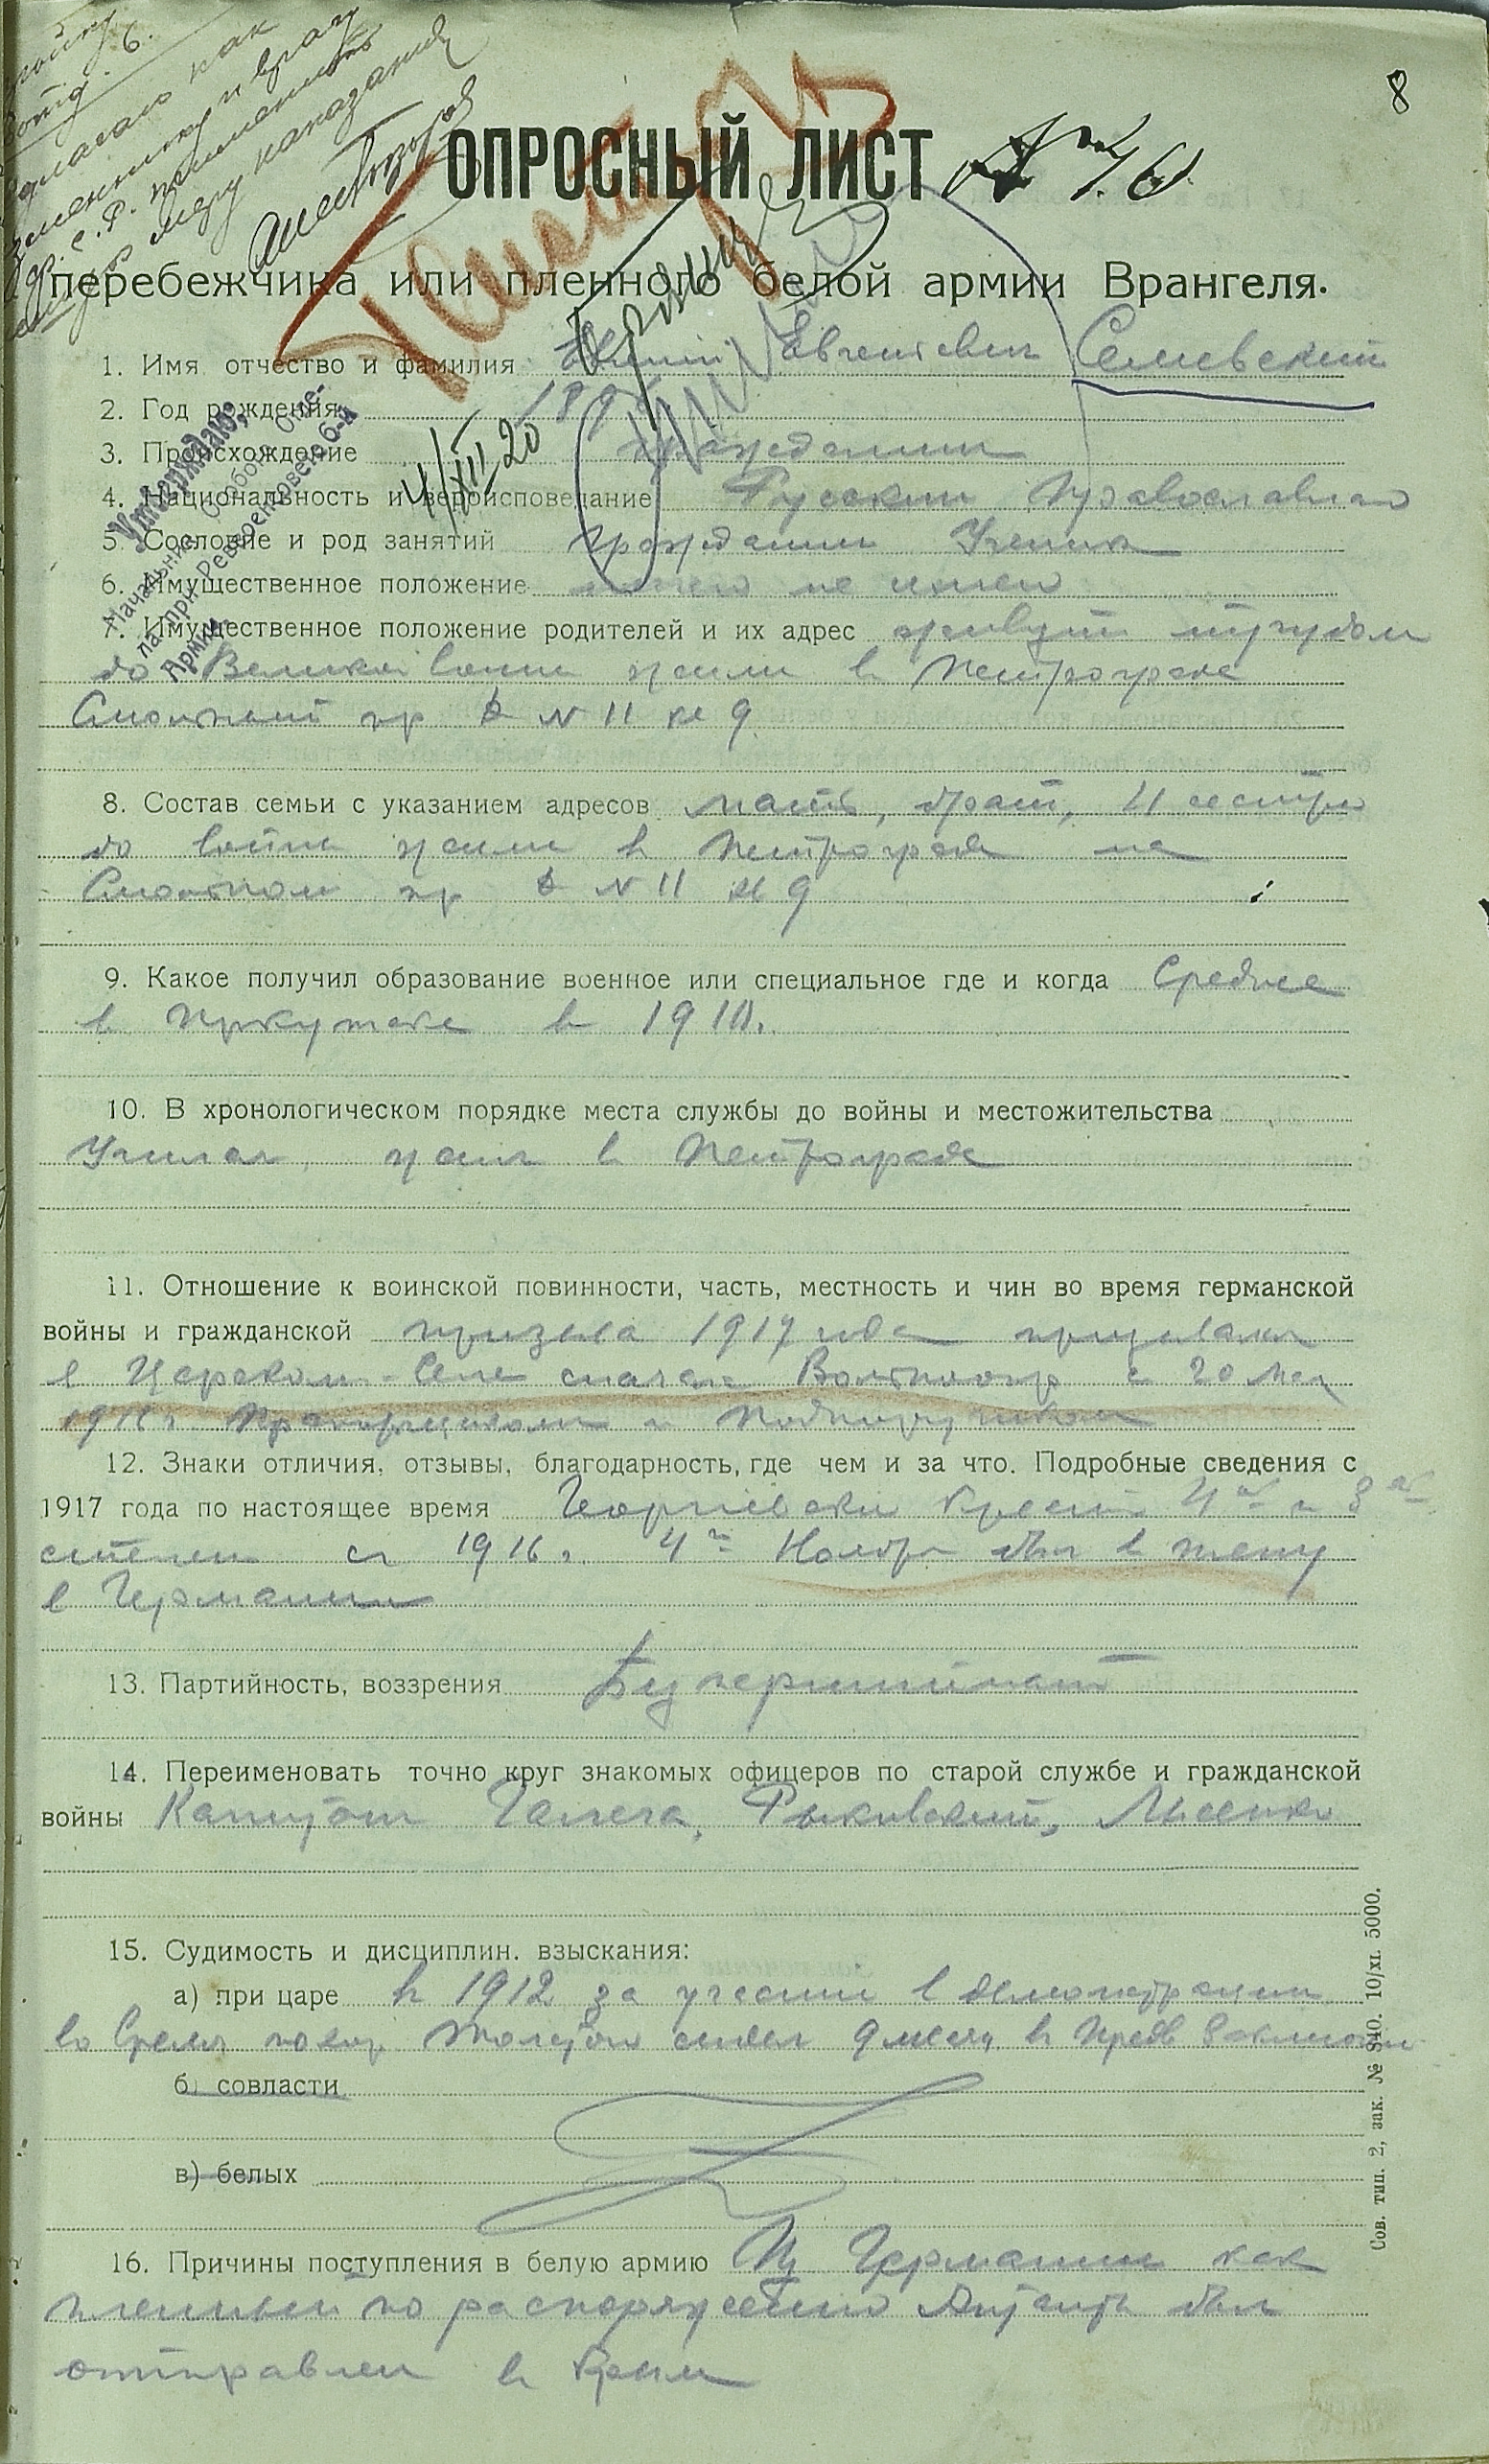 8
ОПРОСНЫЙ ЛИСТ
перебежчика или пленного белой армии Врангеля.
1. Имя отчество и фамилия Евгеньевич Семевский
2. Год рождения 189
4/XII 20
"Утверждаю"
Начальник Особого Отде-
ла при Реввоенсовете 6-й
Армии.
3. Происхождение гражданин
4. Национальность и вероисповедание Русский Православно
5. Сословие и род занятий гражданин Ученик
6. Имущественное положение ничего не имею
7. Имущественное положение родителей и их адрес живут трудом
до Великой войны жили в Петрограде
Смольный пр д N 11 кв 9
8. Состав семьи с указанием адресов мать, брат, 4 сестры
до войны жили в Петрограде на
Смольном пр д N 11 кв 9
9. Какое получил образование военное или специальное где и когда Среднее
в Иркутске в 1910.
10. В хронологическом порядке места службы до войны и местожительства
Учился, жил в Петрограде
11. Отношение к воинской повинности, часть, местность и чин во время германской
войны и гражданской призыва 1917 года призывался
в Царском-Селе сначала Вольноопр с 20 Мая
1916 г. Прапорщиком и Подпоручиком
12. Знаки отличия, отзывы, благодарность, где чем и за что. Подробные сведения с
1917 года по настоящее время Георгиевский Крест 4ой и 3ей
степени с 1916 г. 4го Ноября был в плену
в Германии
13. Партийность, воззрения Беспартийный
14. Переименовать точно круг знакомых офицеров по старой службе и гражданской
войны Капитан Рыковский, Лысенко
15. Судимость и дисциплин. взыскания:
а) при царе в 1912 за участие в демонстрации
во время похор Толстого сидел 9 месяц в Пред Заключен
б) совласти
в) белых
16. Причины поступления в белую армию Из Германии как
пленный по распоряжению Антанты был
отправлен в Крым
Сов. тип. 2, зак. № 840. 10/XI. 5000.